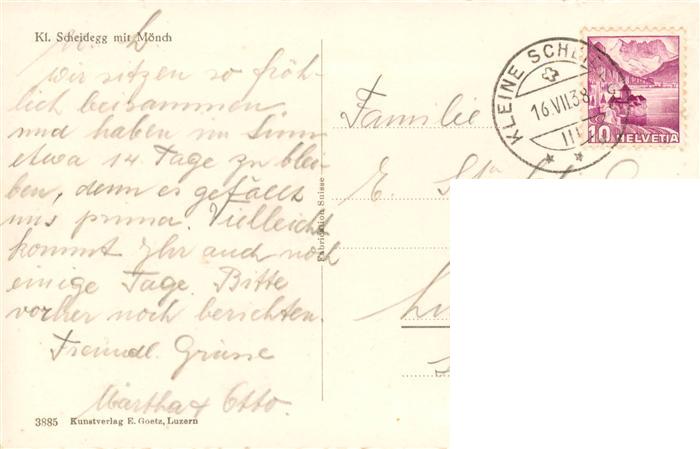 Kl. Scheidegg mit Mönch
M. L
wir sitzen so fröh-
lich beisammen
und haben im Sinn
etwa 14 Tage zu blei-
ben, denn es gefällt
uns prima. Vielleicht
kommt Ihr auch noch
einige Tage. Bitte
vorher noch berichten.
Freundl. Grüsse
Martha & Otto.
3885 Kunstverlag E. Goetz, Luzern
Fabrication Suisse
KLEINE SCH
16.VII.38
10 HELVETIA
Familie
E.